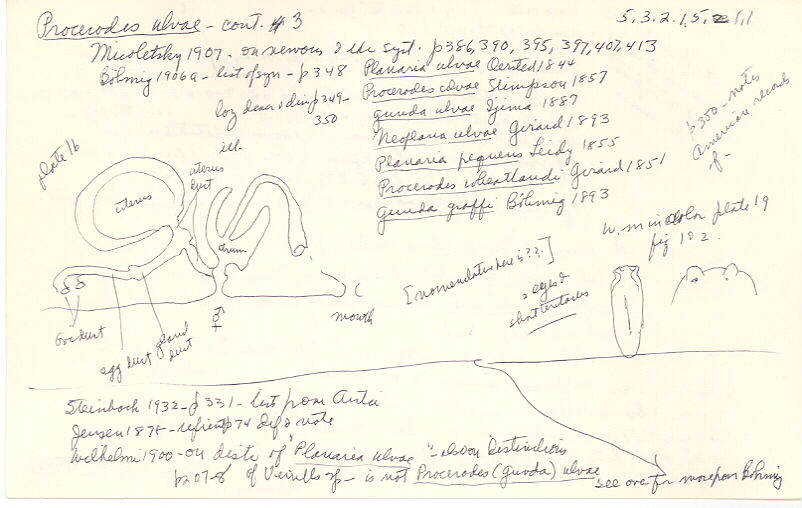 Procerodes ulvae - cont. #3
5.3.2.15.2
Micoletsky 1907 - on nervous syst. p386, 390, 395, 397, 407, 413
Böhmig 1906a - list of syn - p348
long descr p349-
350
ill.
Planaria ulvae Oersted 1844
Procerodes ulvae Stimpson 1857
gunda ulvae Ijima 1887
Neoplana ulvae Girard 1893
Planaria frequens Leidy 1855
Procerodes wheatlandi Girard 1851
Gunda graffi Böhmig 1893
p350 - notes
American records
of -
plate 16
uterus
uterus
duct
atrium
mouth
♂
♀
Oviduct
egg duct
gland
duct
[nomenclature here is ??.]
2 eyes &
short tentacles
w. mini color plate 19
fig 1 & 2.
Steinbock 1932 - p331 - list from
Jensen 1878 - p74 note
Wilhelmi 1900 - on distr of "Planaria ulvae" - also on distinctions
p207-8 of Verrill's sp - is not Procerodes (gunda) ulvae
see over for more from Böhmig